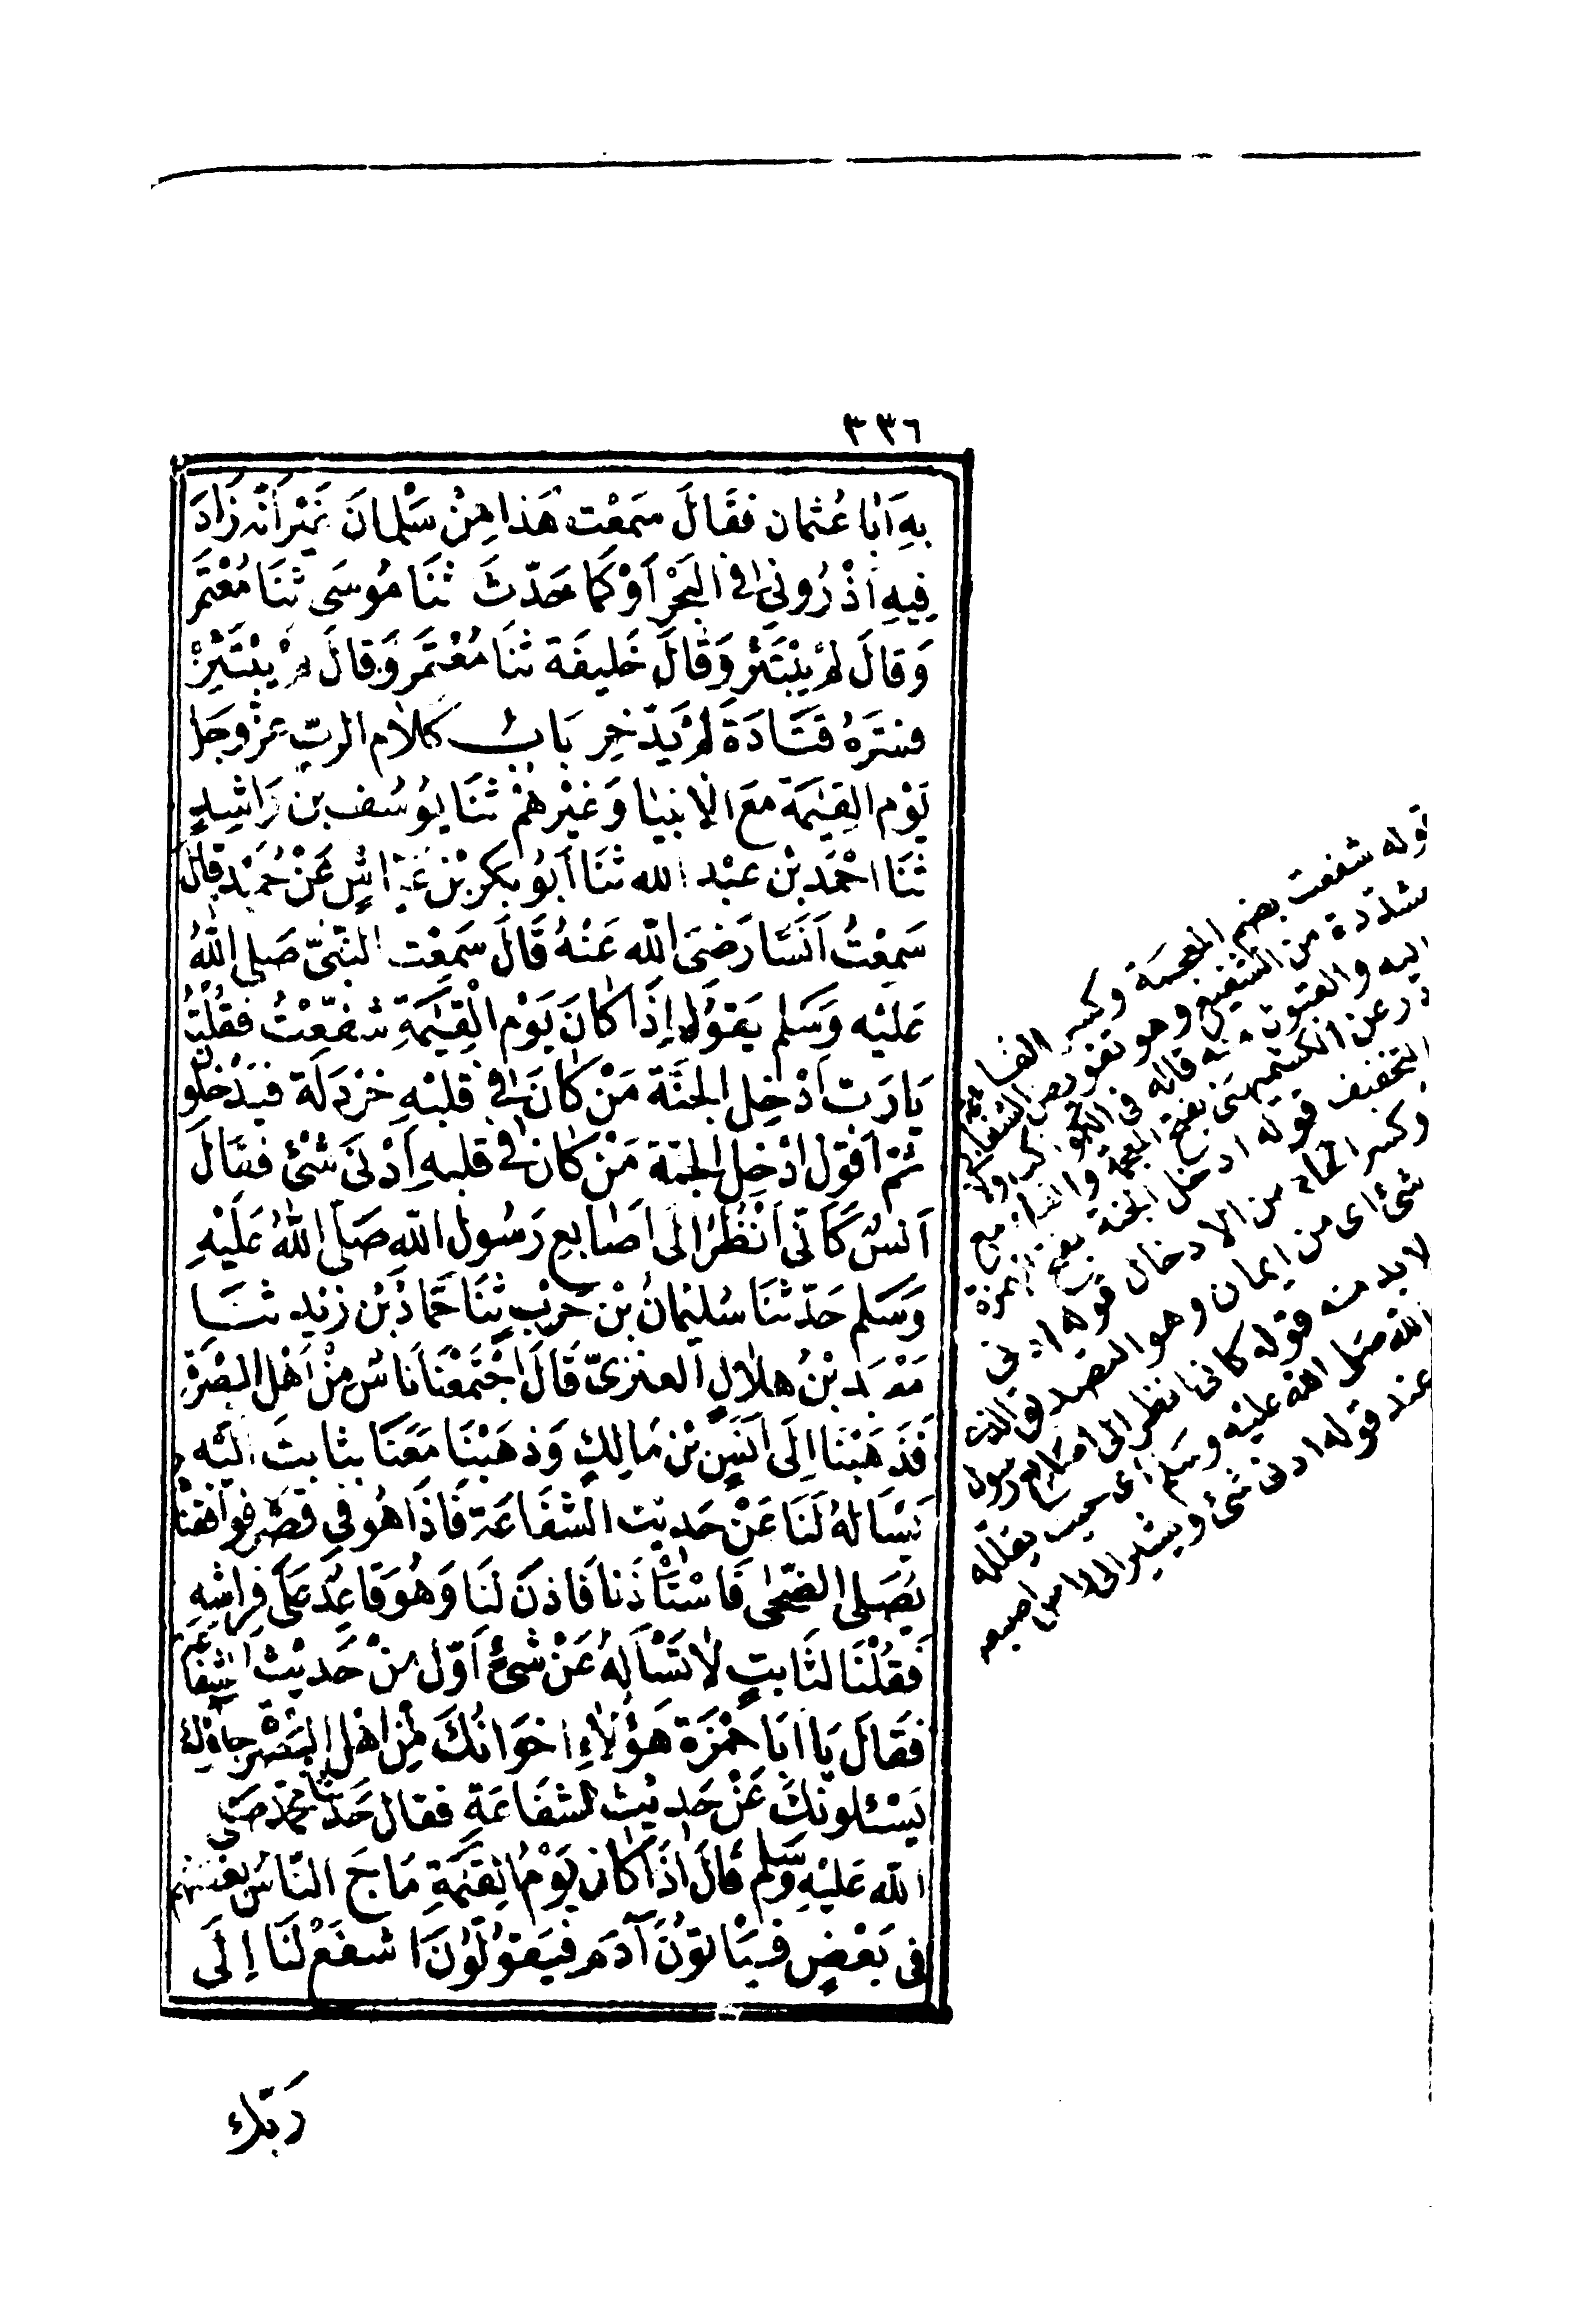 ٣٣٦
بِهِ اَبَا عُثمان فقَالَ سَمِعْت هَذا مِنْ سَلْمانَ غَيْرَ اَنّه زَادَ
فِيهِ اَذْرُونِي فِي البَحْرِ اَوْ كَمَا حَدّثَ ثنَا مُوسَى ثنَا مُعْتَمَر
وَقالَ لَمْ يَبْتَئِرْ وَقَالَ خَليفَة ثنَا مُعْتمَر وَقالَ لمْ يَبْتَئِزْ
فسَّرَهُ قتَادَة لَمْ يَدّخِر بَابُ كلَام الربّ عزّ وجَل
يَوْم القِيٰمَة مَعَ الانبيَا وَغيْرهمْ ثنَا يوُسُف بن رَاشِدٍ
ثنَا احْمَد بْن عبْد الله ثنَا اَبوُ بكر بْن عَيّاشٍ عَنْ حُمَيْد قال
سَمِعْتُ اَنسًا رَضىَ الله عَنْهُ قَالَ سَمِعْت النّبىّ صَلى اللهُ
عَليْه وَسَلم يَقوُل اِذَا كَانَ يَوْم الْقِيٰمَةِ شفّعْتُ فقلْتُ
يَا رَبّ اَدْخِل الجَنَّة مَنْ كَانَ فِي قلبْهِ خرْدَلَة فيَدْخلُونَ
ثمّ اَقول ادْخِل الجنة مَنْ كَانَ فِي قلبهِ اَدْنَى شَئْ فقَالَ
اَنسٌ كَاَنّى اَنْظُرُ الَى اَصَابِع رَسُول اللهِ صَلى اللهُ عَلَيْهِ
وَسَلم حَدّثنَا سُليْمانُ بْن حَرْبٍ ثنَا حَمّادُ بْن زيْدٍ ثنَا
مَعْبَد بْنُ هلاَلٍ العنزىّ قَالَ اجْتمَعْنَا نَاسٌ مِنْ اَهْل البَصْرَةِ
فَذَهَبْنَا اِلَى اَنَسِ بْن مَالِكٍ وَذهَبْنَا مَعَنَا بثابتَ اليْه
يَسْاَلهُ لَنَا عَنْ حَديث الشّفَاعَة فَاِذَا هُو فِي قصْرِه فَوَافقنَاه
يُصَلى الضّحٰى فَاسْتَأذَنا فَاذنَ لنَا وَهُوَ قَاعِدٌ عَلى فِراشِهِ
فَقُلْنَا لثَابِتٍ لَا تَسْاَلهُ عَنْ شئْ اَوّل مِنْ حَديْث الشفاعَة
فقَالَ يَا ابَا حَمْزَة هَؤُلاَءِ اخوَانُكَ مِنْ اهْل البَصْرَة جَاؤُكَ
يَسْئلونَكَ عَنْ حَديْث الشفَاعَةِ فقال حَدّثنَا محمّد صَلى
الله عَليْهِ وَسَلم قَالَ اِذَا كَان يَوْمُ القِيٰمَةِ مَاجَ النّاسُ بَعْضهُم
فِى بَعْضٍ فيَاتوُنَ آدَمَ فيَقوُلوُنَ اشفَعْ لَنَا اِلَى
رَبّك
قوله شفعت بضم المعجمة وكسر الفا
مشددة من التشفيع وهو تفويض الشفاعة
اليه والقبول منه قاله فى الكواكب ولابى
ذر عن الكشميهنى بفتح المعجمة والفا مع
التخفيف قوله ادخل الجنة بفتح الهمزة
وكسر الخاء من الادخال قوله ادنى
شئ اى من ايمان وهو التصديق الذى
لا بد منه قوله كانى انظر الى اصابع رسول
الله صلى الله عليه وسلم اى حيث يقلله
عند قوله ادنى شئ ويشير الى راس اصبعه